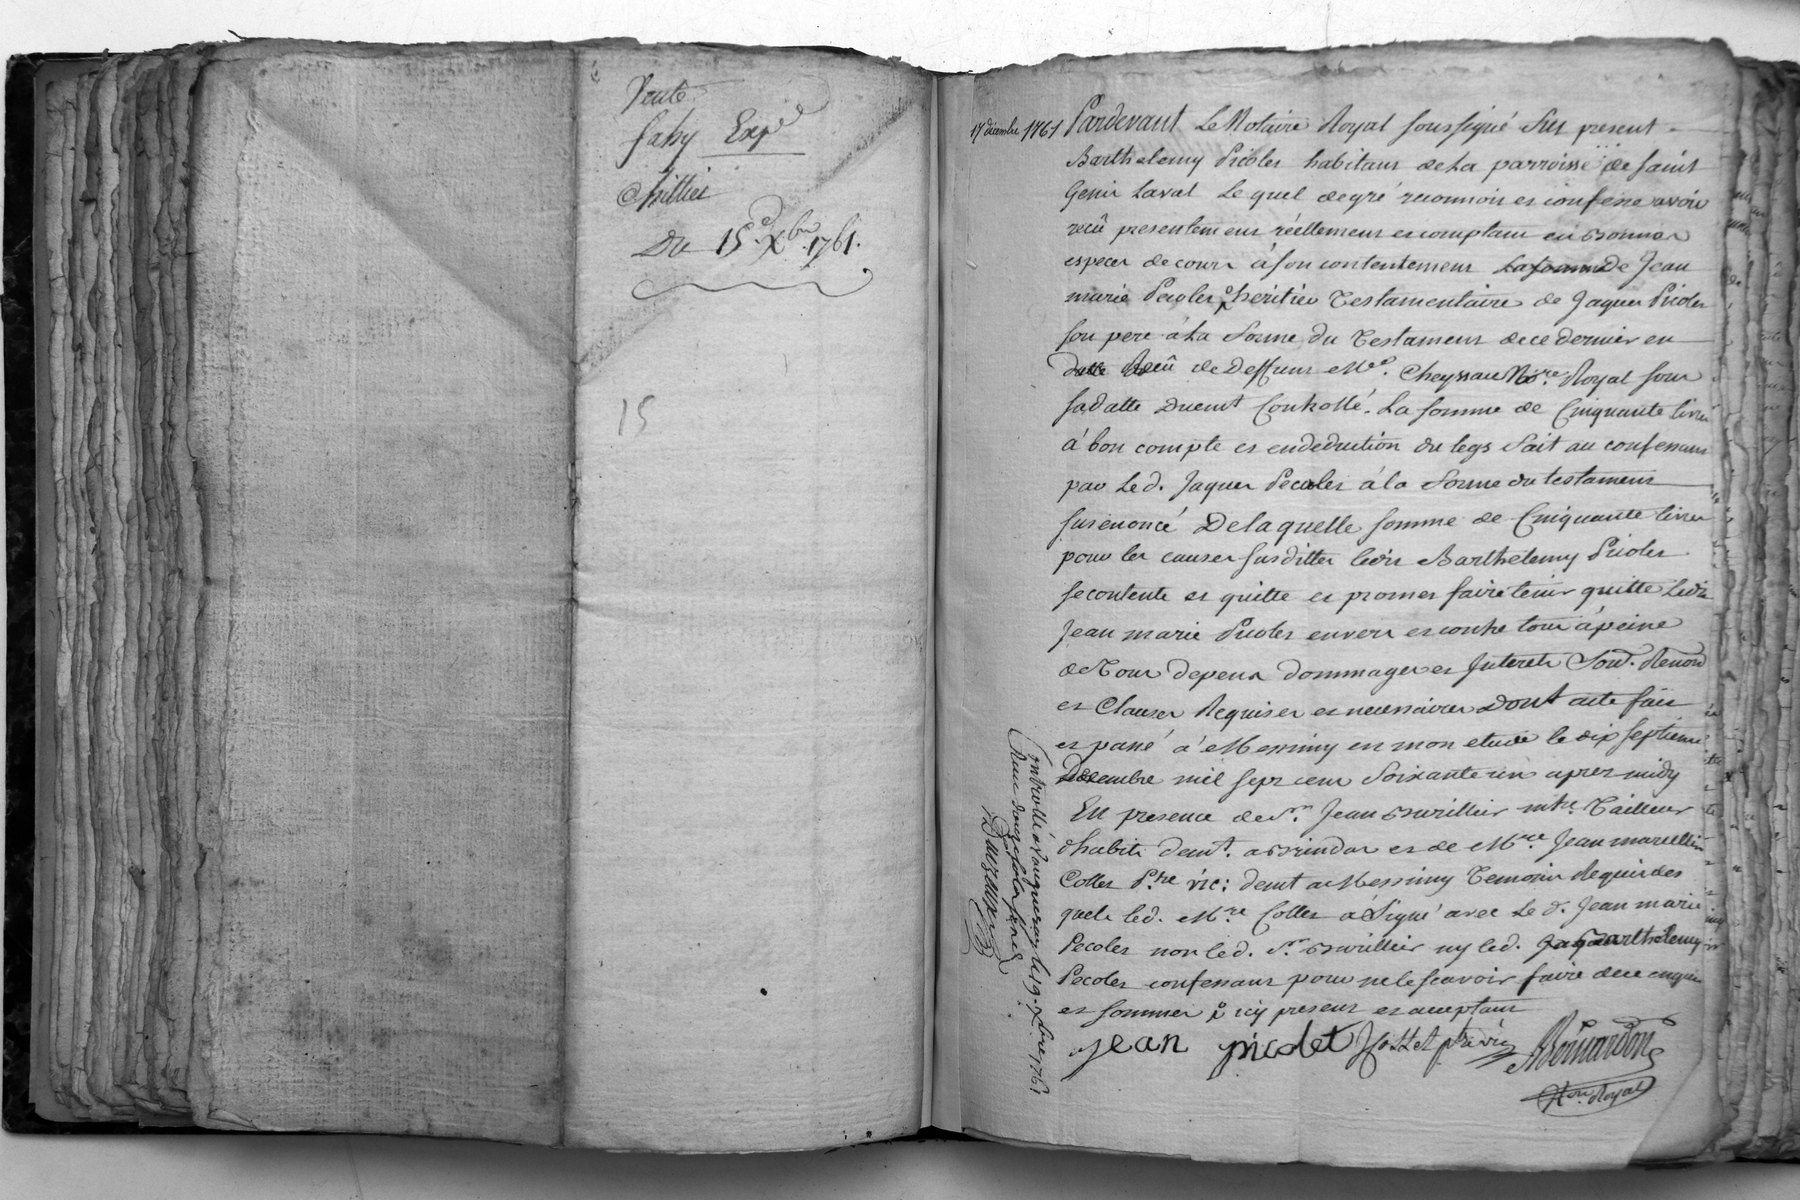 Vente
fahy Expée
Chillier
Du 15e Xbre 1761.
15
17 décembre 1761
Pardevant Le Notaire Royal soussigné fut present
Barthelemy Picolet habitant de La parroisse de saint
Genis Laval Lequel de gré reconnoit et confesse avoir
recû presentement réellement et comptant en bonnes
especes de cours à son contentement de Jean
marie Pecolet heritier Testamentaire de Jaques Picolet
son pere à la forme du Testament de ce dernier en
datte Recû de Deffunt Me. Cheyssac Nore. Royal sous
sa datte Duemt Controllé. La somme de Cinquante livres
à bon compte et en deduction du legs fait au confessant
par Led. Jaques Pecolet à la forme du testament
susenoncé De laquelle somme de Cinquante livres
pour les causes susdittes ledit Barthelemy Picolet
se contente et quitte et promet faire tenir quitte Ledit
Jean marie Picolet envers et contre tous à peine
de Tous depens dommages et Interets sous. Renon
et Clauses Requises et necessaires Dont acte fait
et passé à Messimy en mon etude le dix septieme
Decembre mil sept cent soixante un apres midy
En presence de Sr. Jean mtre Tailleur
d'habits demt. a Brindas et de Mre Jean marcellin
Collet Ptre vic: demt a Messimy Temoins Requis des
quels led. Mre Collet a signé avec Le d. Jean marie
Pecolet non led. Sr ny led. Barthelemy
Pecolet confessant pour ne le scavoir faire de ce enquis
et sommes icy present et acceptant
jean picolet
Nore. Royal
Controllé à Vaugneray le 19. Xbre 1761
Recu douze sols six den